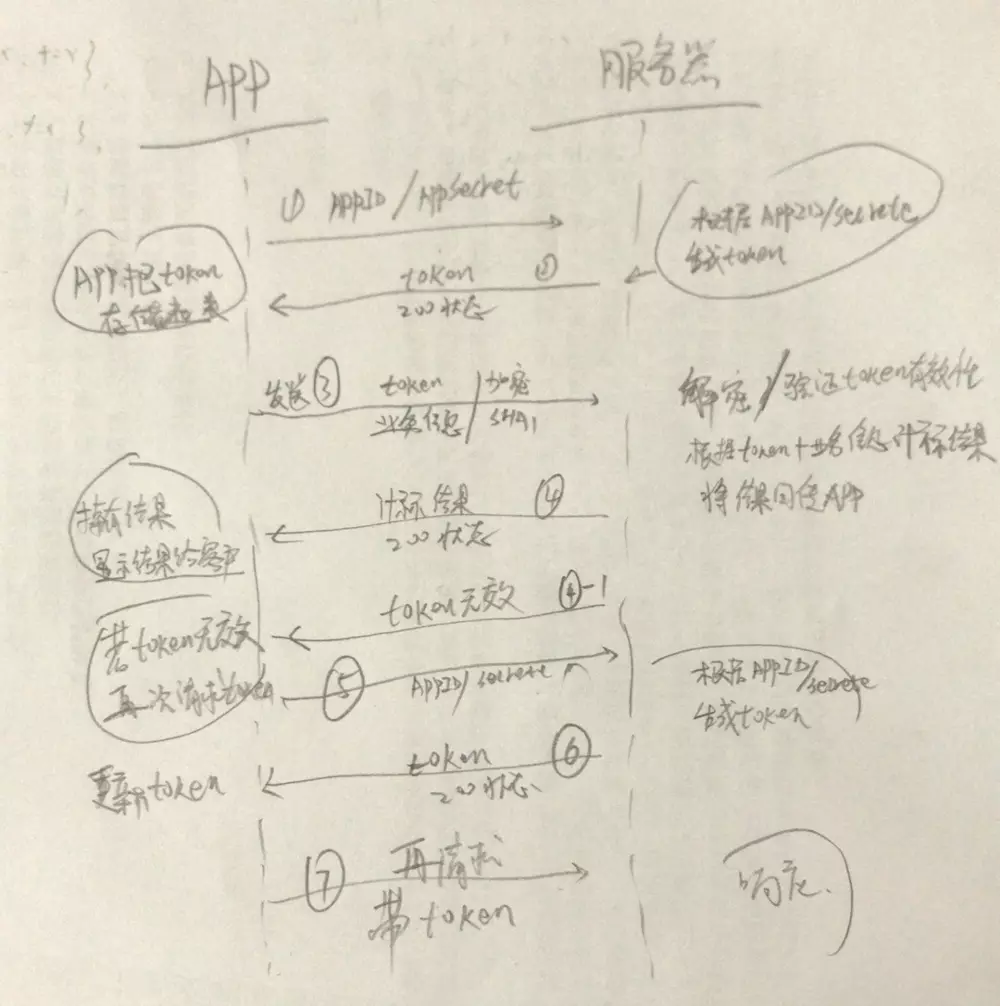 APP
服务器
① APPID / APPSecret
根据APPID/secrete
生成token
APP把token
存储起来
token ②
200状态
发送③ token / 加密
业务信息 / SHA1
解密/验证token有效性
根据token+业务信息计算结果
将结果回传APP
计算结果 ④
200状态
结果
显示结果给客户
token无效 ④-1
若token无效
再次请求token
⑤ APPID/secrete
根据APPID/secrete
生成token
token ⑥
200状态
更新token
⑦ 再请求
带token
响应.